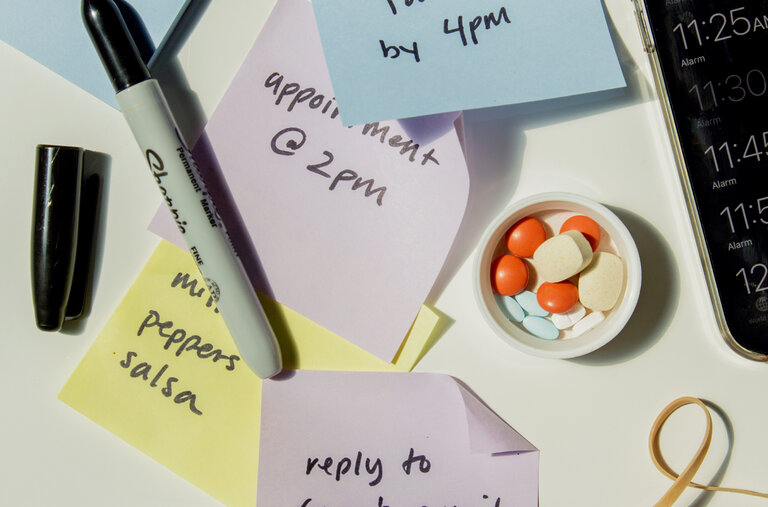 by 4pm
appointment
@ 2pm
Sharpie
Permanent Marker
FINE
peppers
salsa
reply to
11:25AM
Alarm
11:30
Alarm
11:45
Alarm
Alarm
World